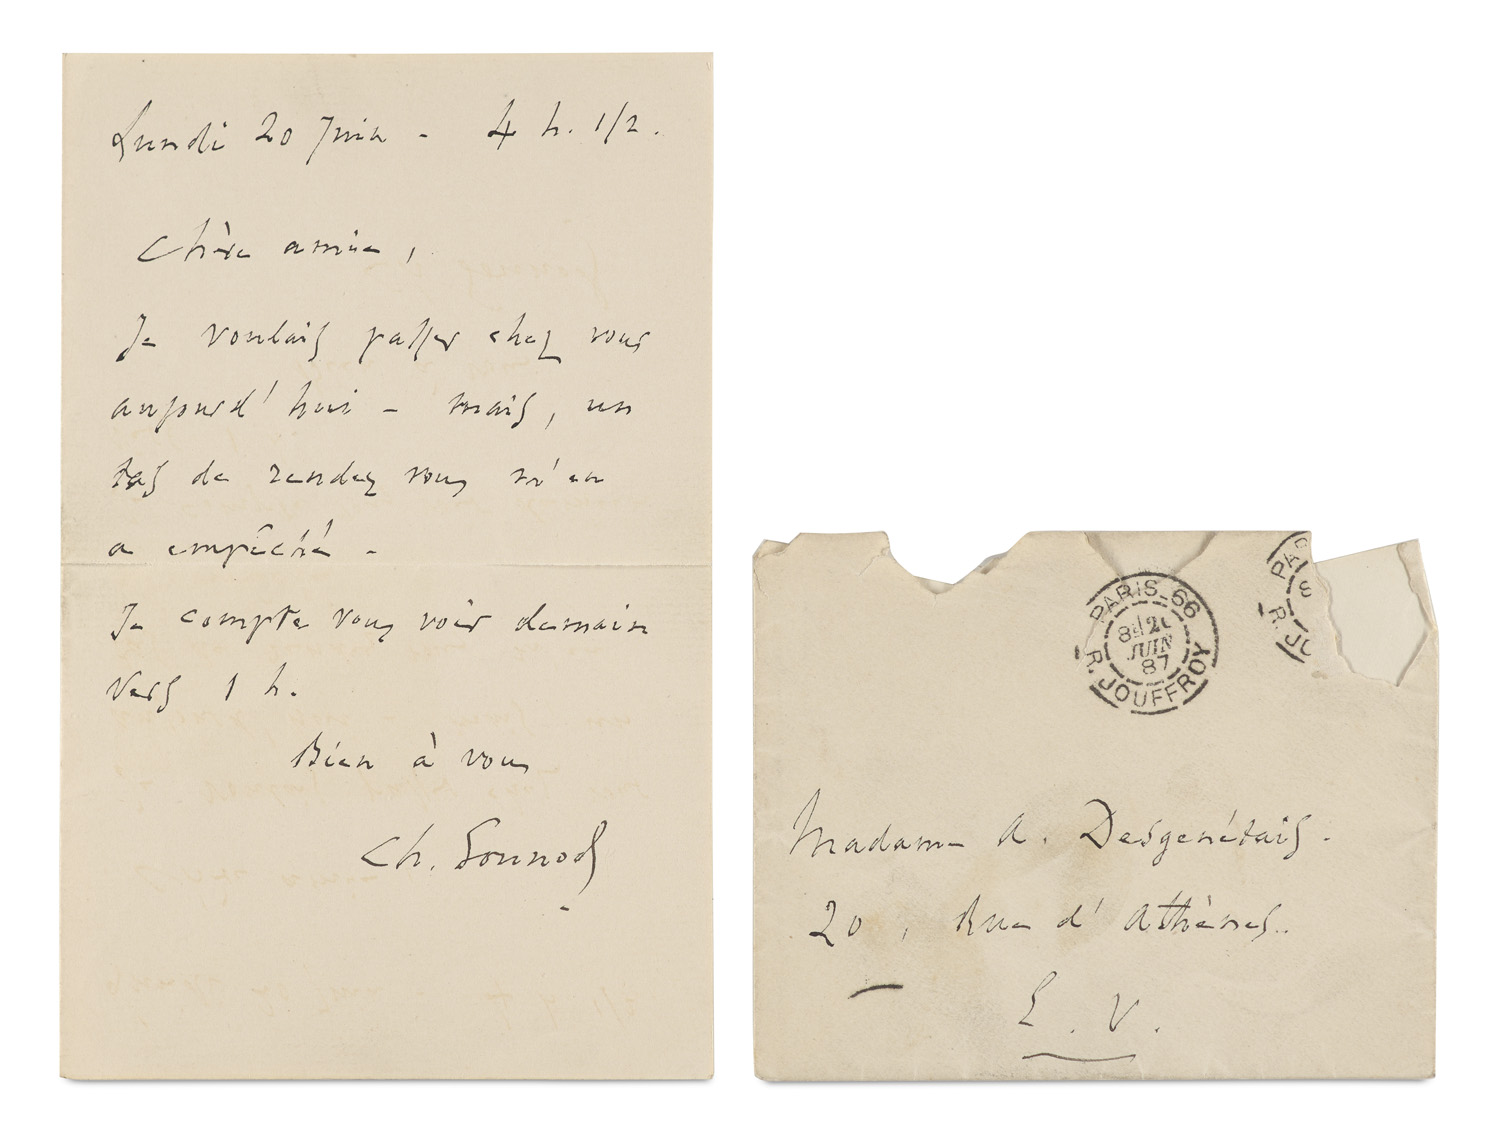 Lundi 20 Juin - 4 h. 1/2.
Chère amie,
Je voulais passer chez vous
aujourd'hui - mais, un
tas de rendez vous m'en
a empêché -
Je compte vous voir demain
vers 1 h.
Bien à vous
Ch. Gounod
PARIS_66
JUIN
87
R. JOUFFROY
PAR
R. JO
Madame A. Desgenétais.
20, Rue d'Athènes..
E. V.